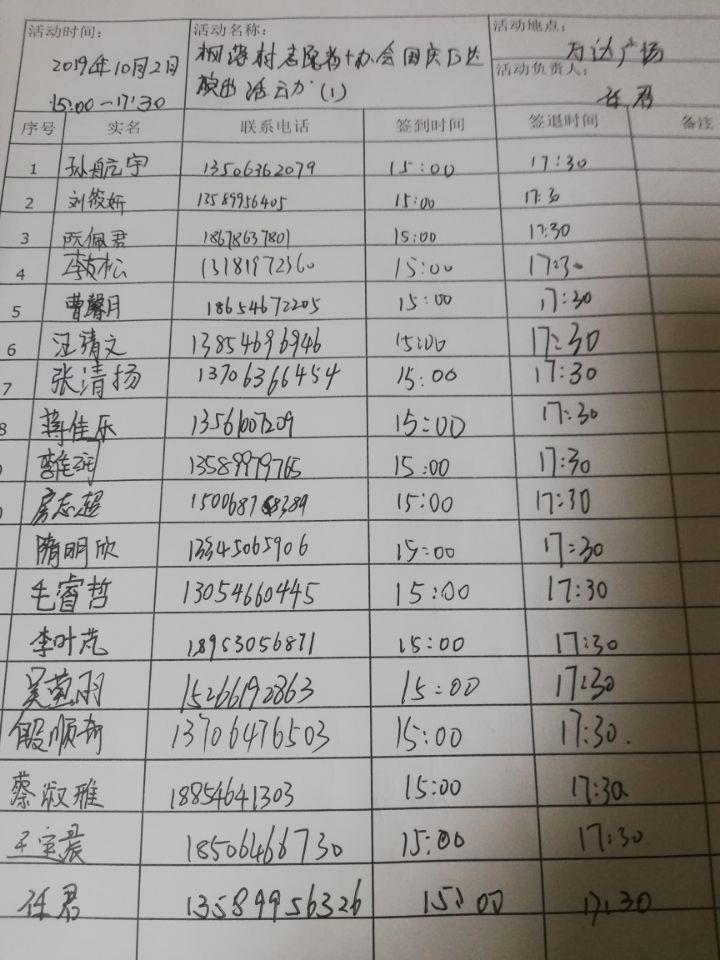 活动时间: 活动名称: 活动地点:
2019年10月2日 万达广场
15:00—17:30 活动(1) 活动负责人:
任君
序号 实名 联系电话 签到时间 签退时间 备注
1 孙航宇 13506362079 15:00 17:30
2 刘筱妍 13589956405 15:00 17:30
3 阮佩君 18678637801 15:00 17:30
4 松 13181972360 15:00 17:30
5 曹馨月 18654672205 15:00 17:30
6 汪靖文 13854696946 15:00 17:30
7 张清扬 13706366454 15:00 17:30
8 蒋佳乐 13561007209 15:00 17:30
13589979765 15:00 17:30
房志超 15:00 17:30
隋明欣 13345065906 15:00 17:30
毛睿哲 13054660445 15:00 17:30
李叶芃 18953056871 15:00 17:30
吴萱雨 15266192863 15:00 17:30
13706476503 15:00 17:30.
蔡淑雅 18854641303 15:00 17:30
王宝晨 18506466730 15:00 17:30
任君 13589956326 15:00 17:30